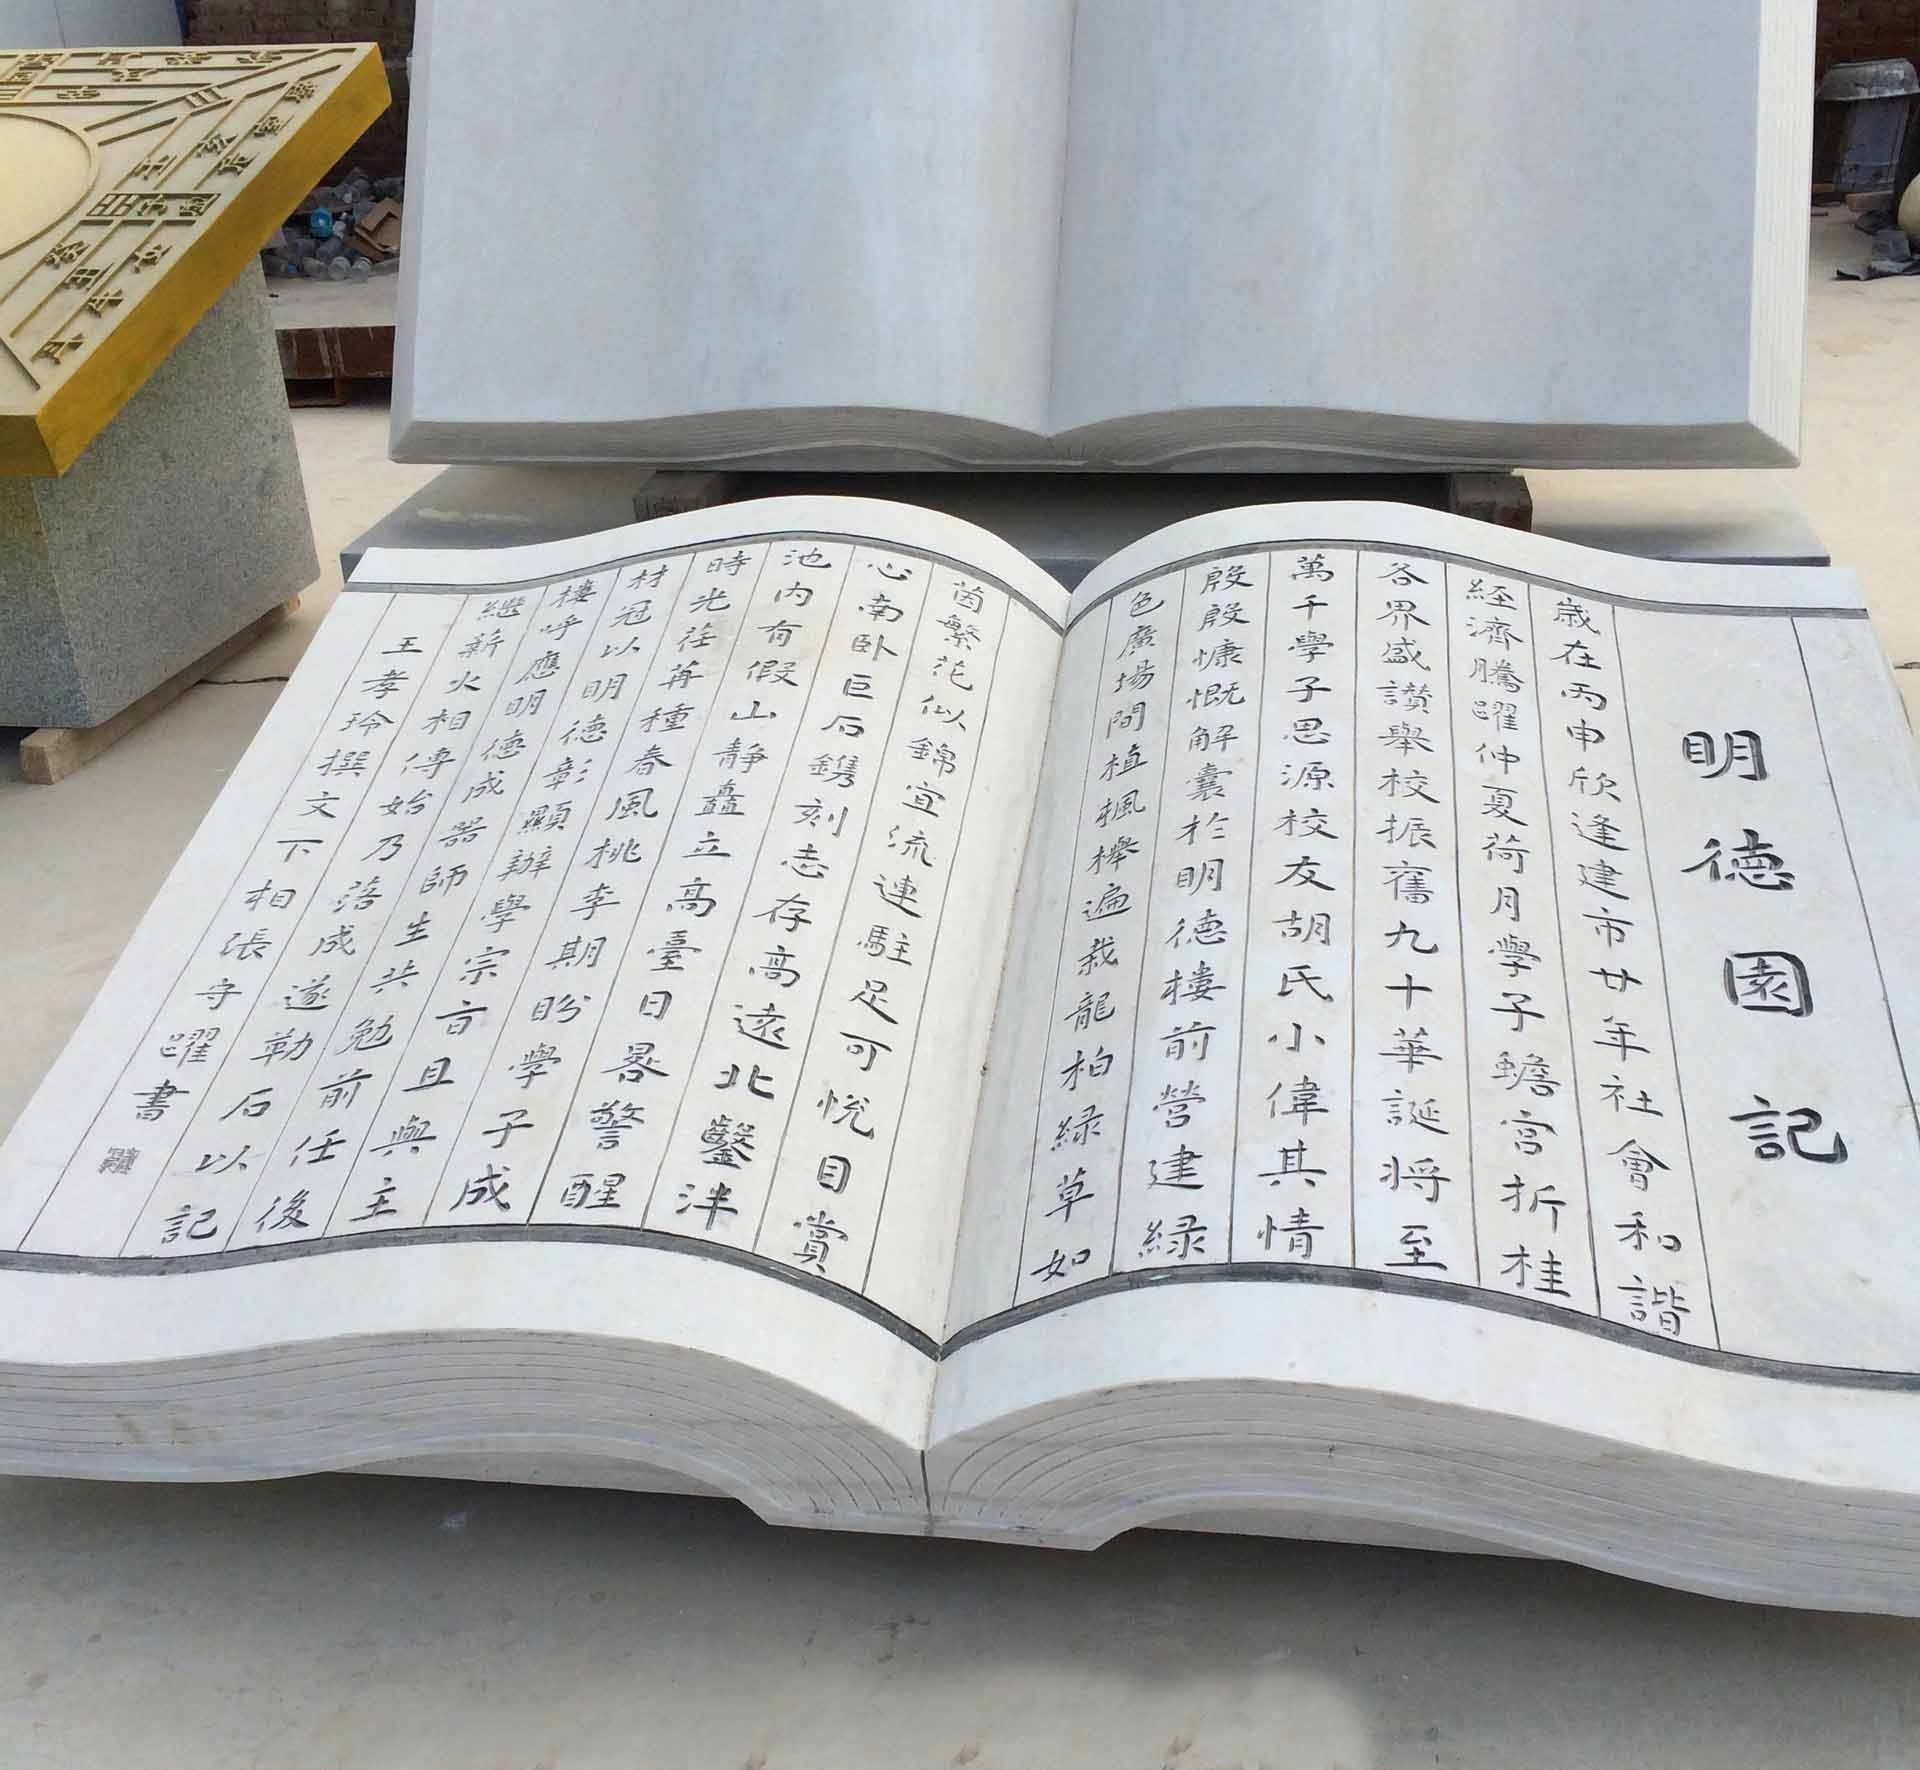 明德園記
歲在丙申欣逢建市廿年社會和諧
経濟騰躍仲夏荷月學子蟾宮折桂
各界盛讃舉校振奮九十華誕將至
萬千學子思源校友胡氏小偉其情
殷殷慷慨解囊於明德樓前營建緑
色廣場間植楓櫸遍栽龍柏緑草如
茵繁花似錦宜流連駐足可悅目賞
心南卧巨石鐫刻志存高遠北鑿泮
池内有假山靜矗立高臺日晷警醒
時光荏苒種春風桃李期盼學子成
材冠以明德彰顯辦學宗旨且與主
樓呼應明德成器師生共勉前任後
繼薪火相傳始乃落成遂勒石以記
王孝玲撰文下相張守躍書